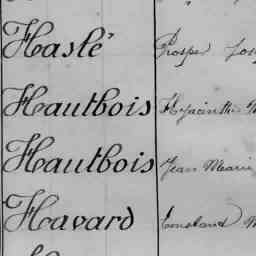 Haslé Prosper
Hautbois Hyacinthe
Hautbois Jean Marie
Havard Constand